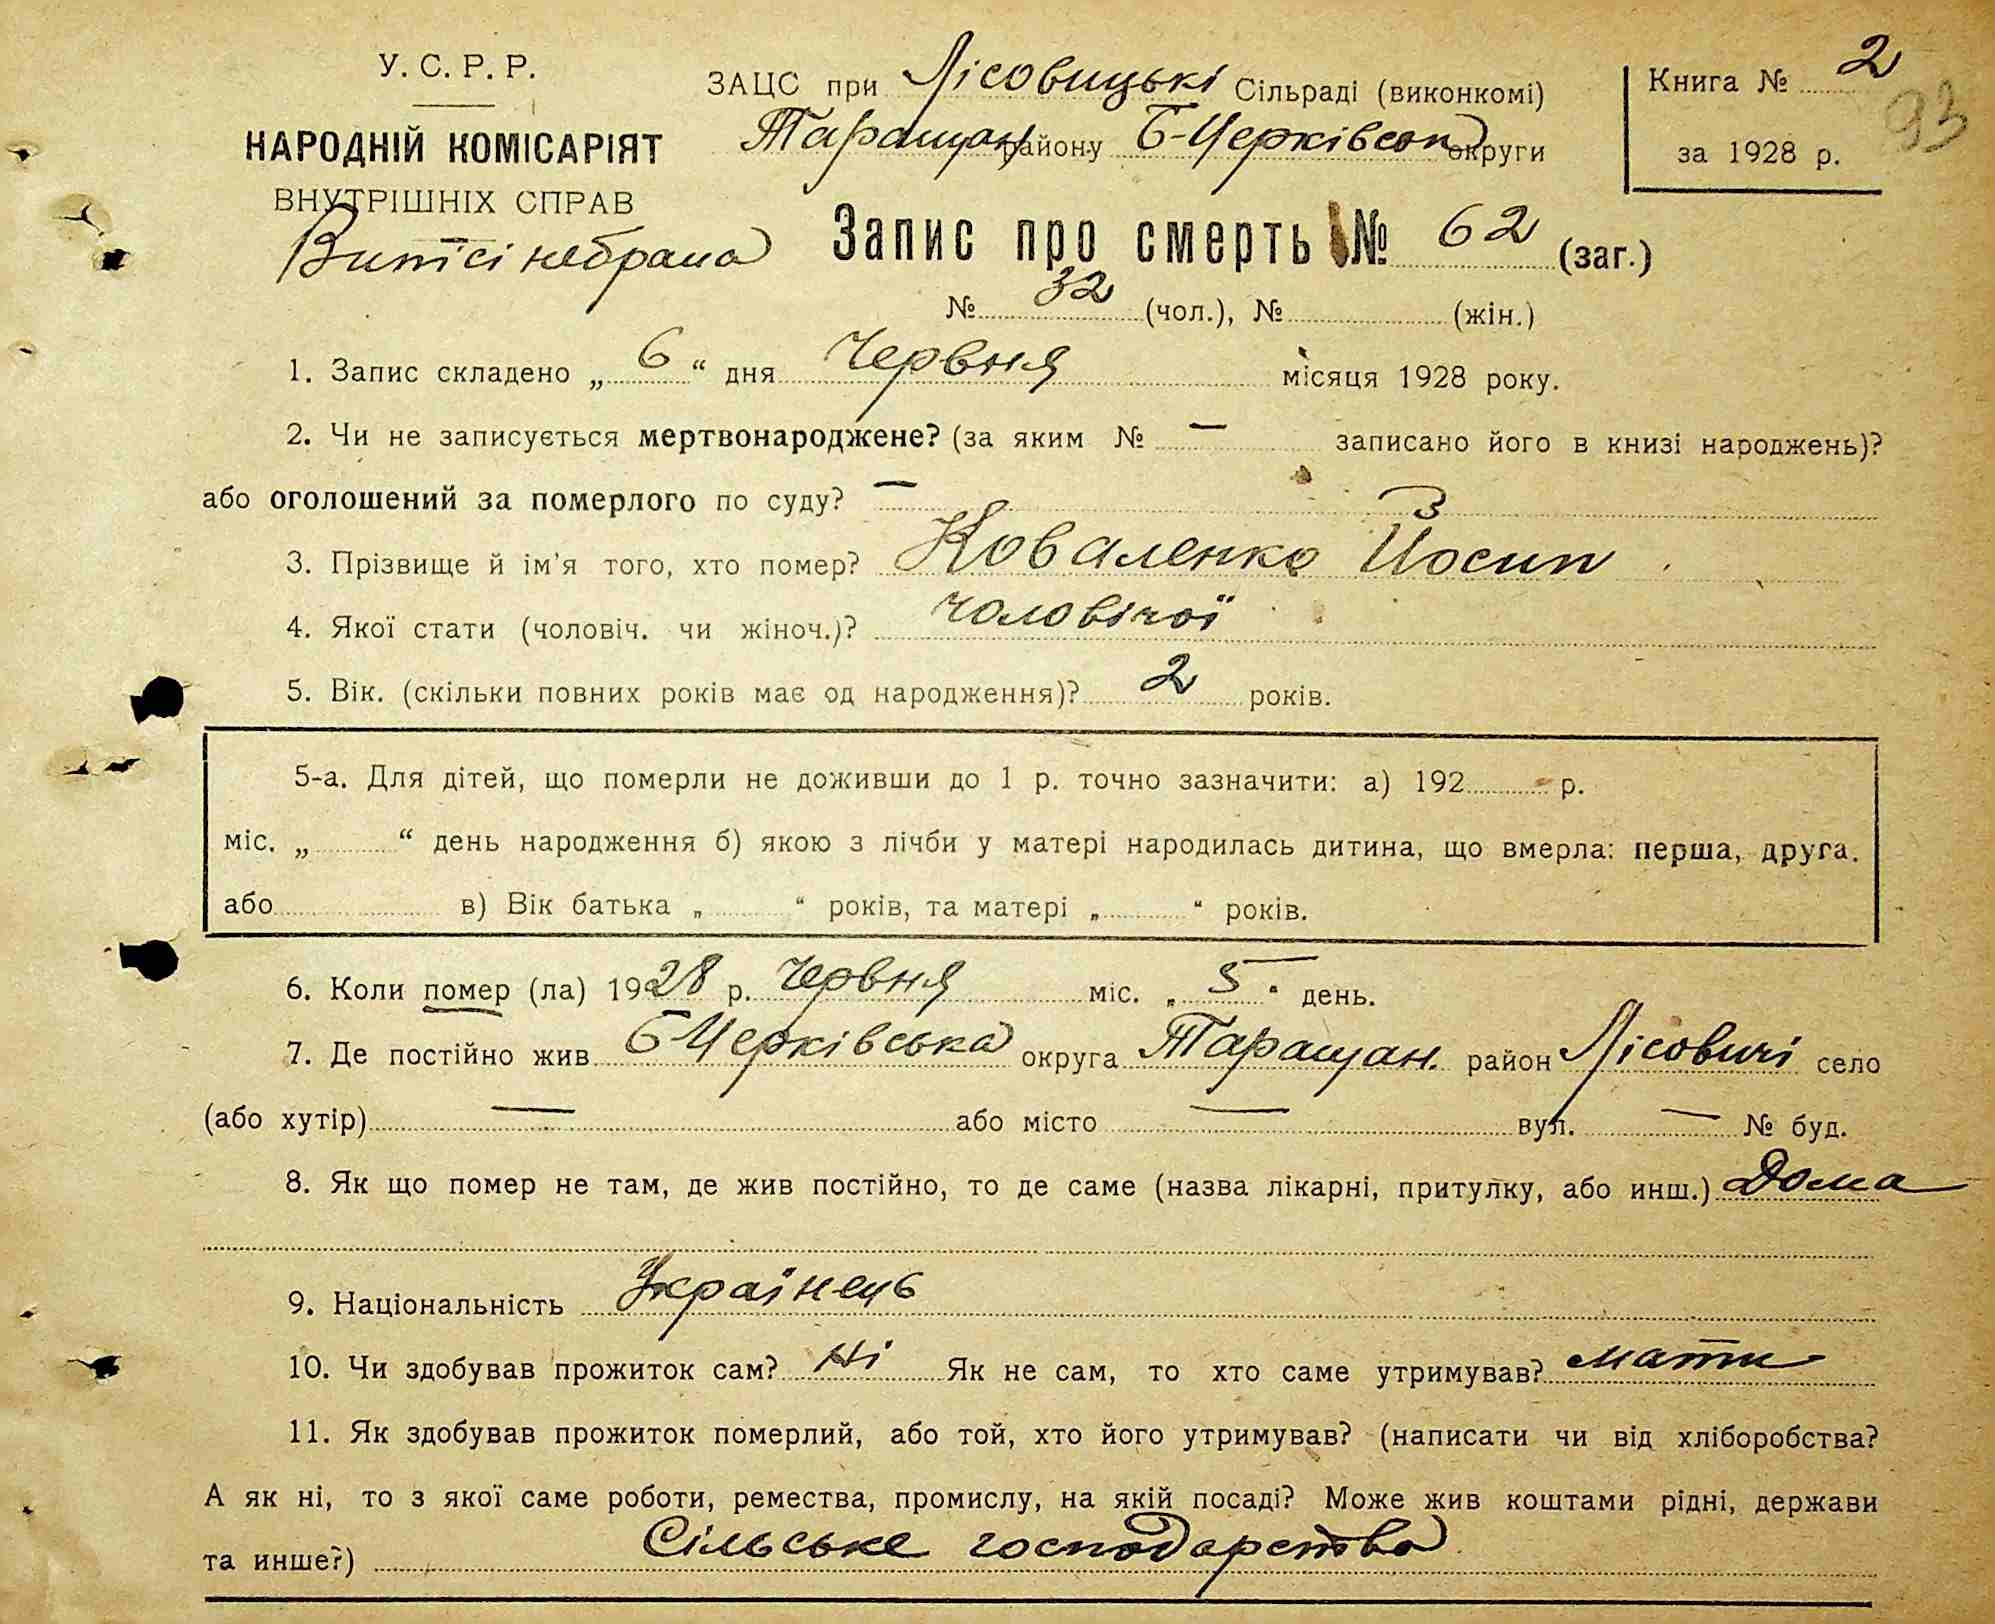 У. С. Р. Р.
НАРОДНІЙ КОМІСАРІЯТ
ВНУТРІШНІХ СПРАВ
ЗАЦС при Лісовицькі Сільраді (виконкомі)
Таращан району Б-Церківськ округи
Книга № 2
93
за 1928 р.
Запис про смерть № 62 (заг.)
№ 32 (чол.), № (жін.)
1. Запис складено „ 6 “ дня Червня місяця 1928 року.
2. Чи не записується мертвонароджене? (за яким № — записано його в книзі народжень)?
або оголошений за померлого по суду? —
3. Прізвище й ім'я того, хто помер? Коваленко Йосип
4. Якої стати (чоловіч. чи жіноч.)? чоловічої
5. Вік. (скільки повних років має од народження)? 2 років.
5-а. Для дітей, що померли не доживши до 1 р. точно зазначити: а) 192 р.
міс. „ “ день народження б) якою з лічби у матері народилась дитина, що вмерла: перша, друга.
або в) Вік батька „ “ років, та матері „ “ років.
6. Коли помер (ла) 1928 р. Червня міс. „ 5 “ день.
7. Де постійно жив Б-Церківська округа Таращан. район Лісовичі село
(або хутір) — або місто — вул. — № буд.
8. Як що помер не там, де жив постійно, то де саме (назва лікарні, притулку, або инш.) Дома
9. Національність Українець
10. Чи здобував прожиток сам? Ні Як не сам, то хто саме утримував? мати
11. Як здобував прожиток померлий, або той, хто його утримував? (написати чи від хліборобства?
А як ні, то з якої саме роботи, ремества, промислу, на якій посаді? Може жив коштами рідні, держави
та инше?) Сільське господарство